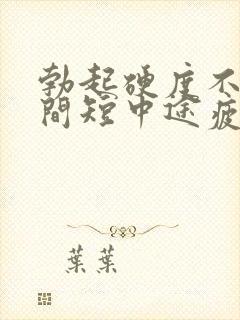 勃起硬度不
間短中途疲
葉葉